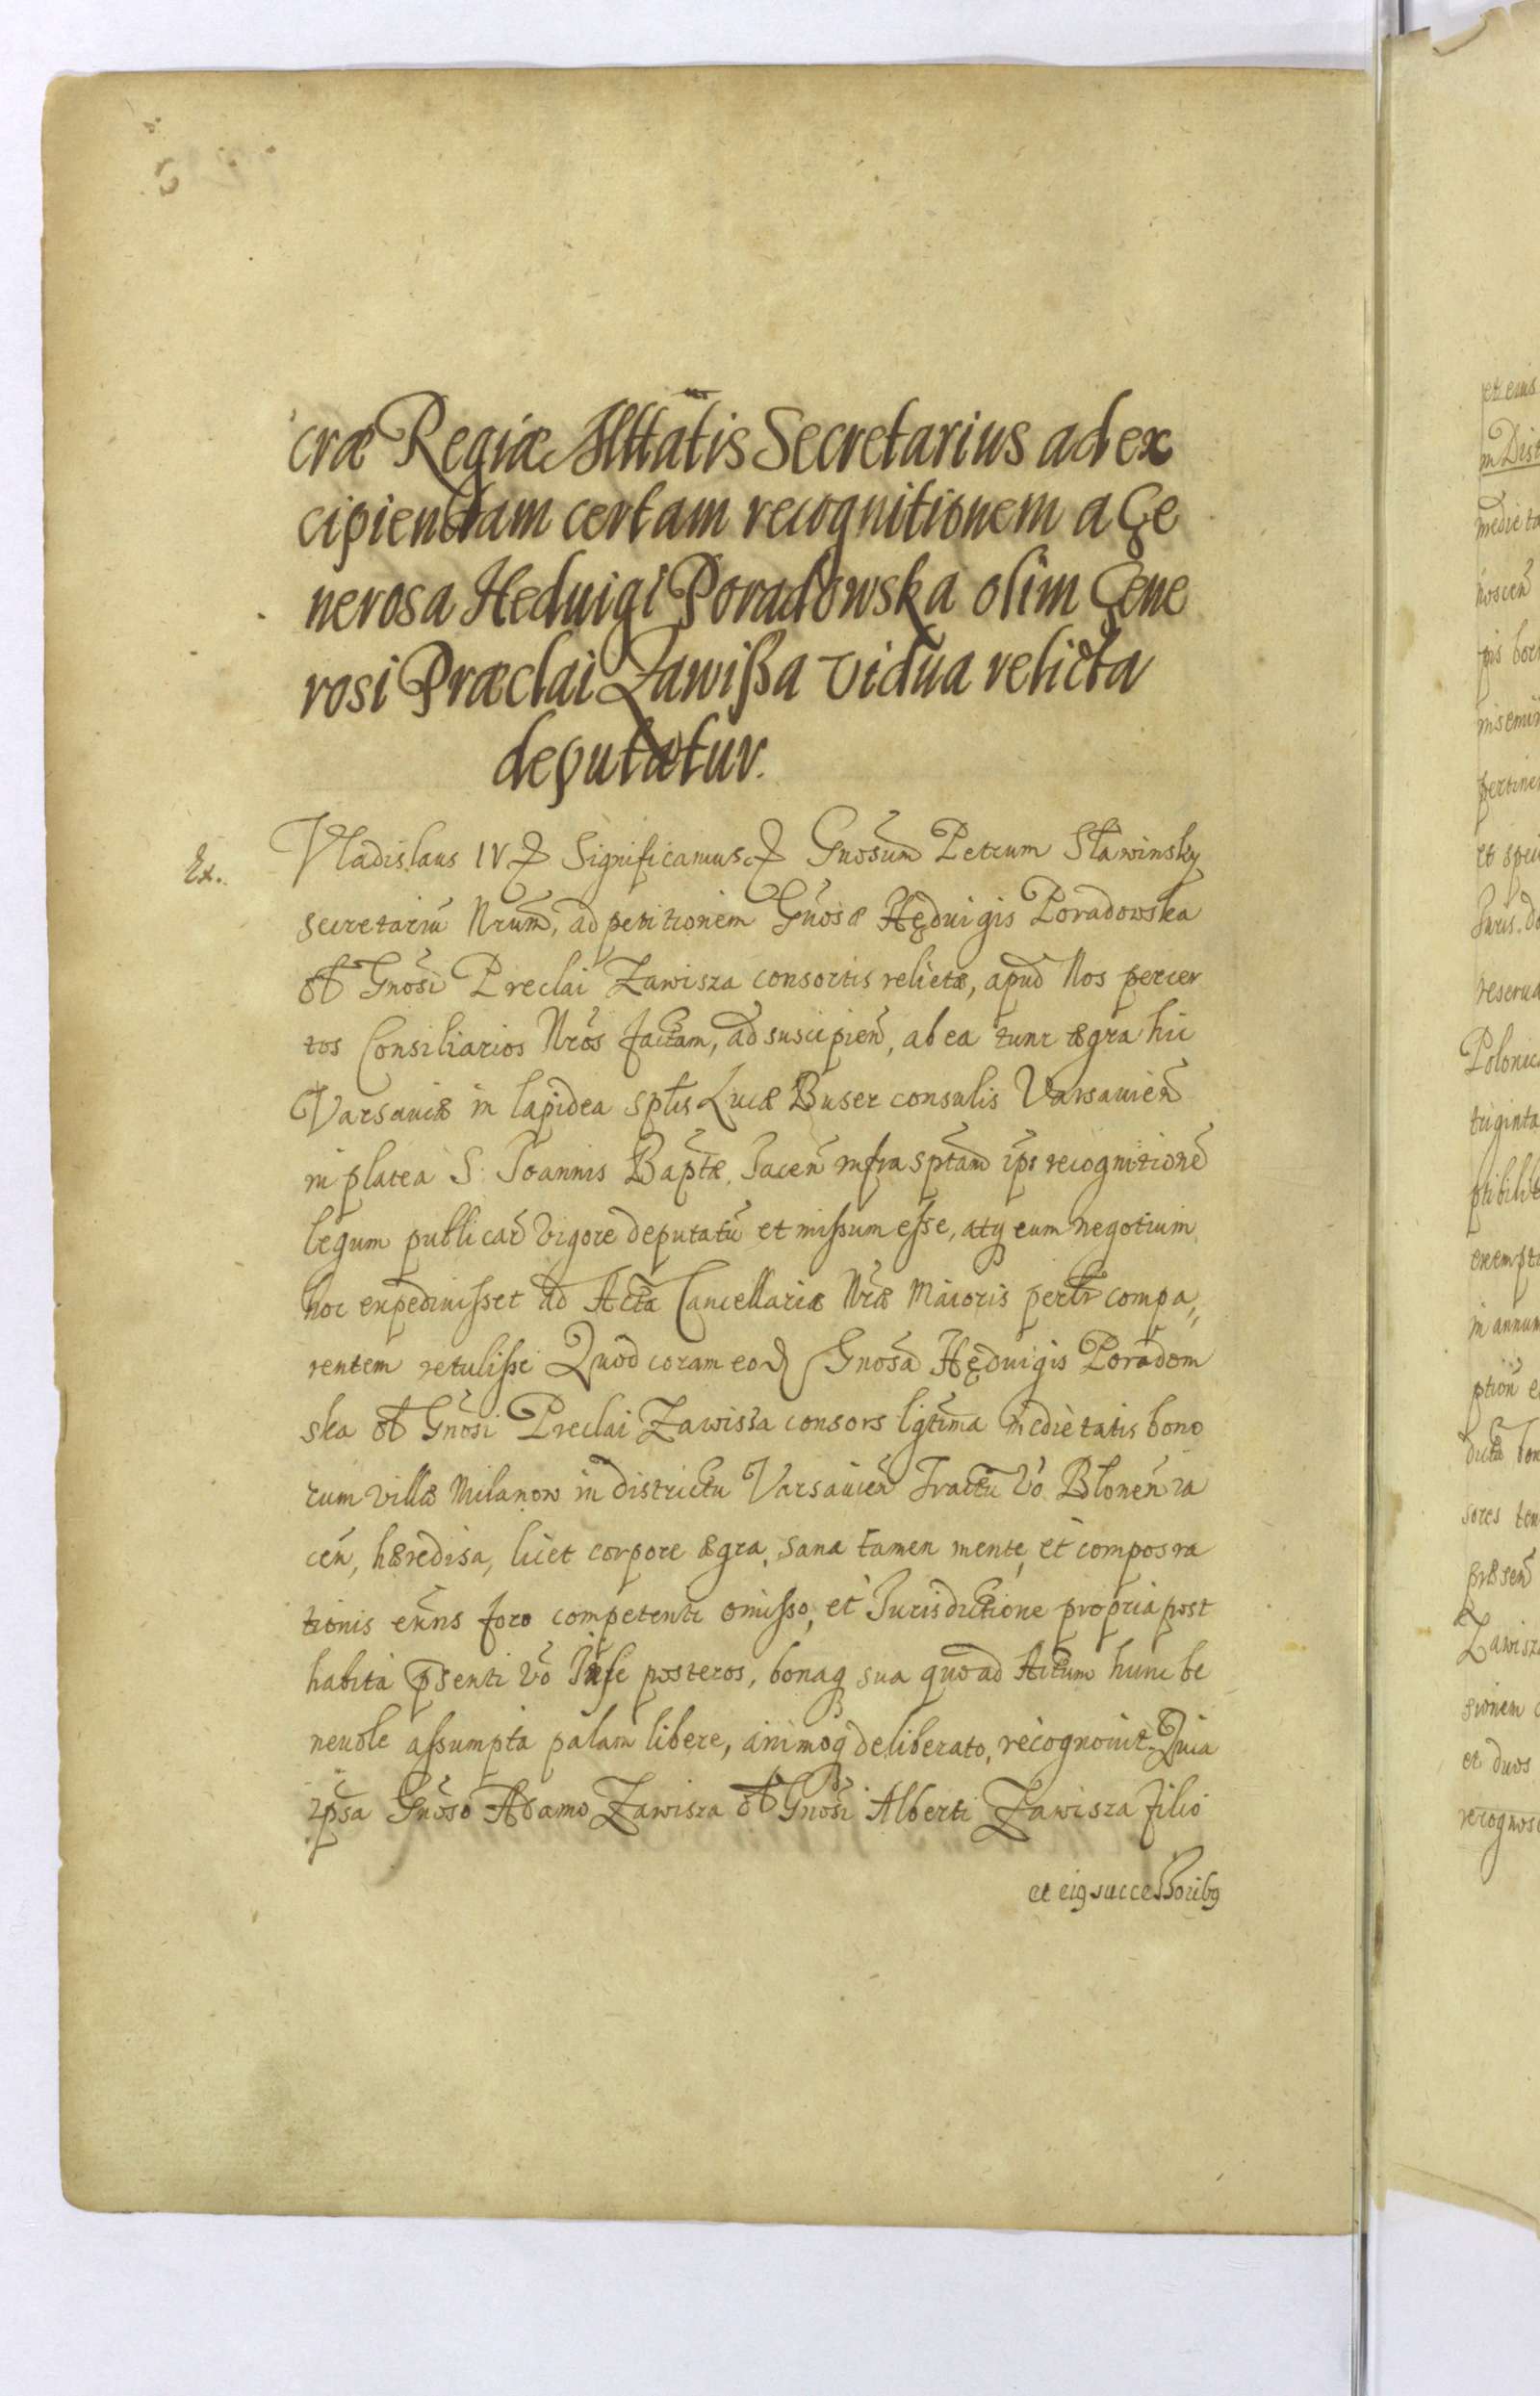 cræ Regiæ Mttatis Secretarius ad ex
cipiendam certam recognitionem a Ge
nerosa Heduigi Poradowska olim Gene
rosi Præclai Zawißa vidua relicta
deputatur.
Ex.
Vladislaus IV Significamus Gnosum Petrum Sławinsky
secretariũ Nrum, ad petitionem Gnosæ Hęduigis Poradowska
ol Gnosi Preclai Zawisza consortis relictæ, apud Nos per cer
tos Consiliarios Nros factam, ad suscipien, ab ea tunc ægra hic
Varsaviæ in lapidea sptis Lucæ Buser consulis Varsavien
in platea S. Joannis Baptæ Jacen infrasptam ips recognitione
legum publicar vigore deputatũ et missum esse, atq eum negotium
hoc expedivisset ad Acta Cancellariæ Nræ Maioris perltr compa„
rentem retulisse Quod coram eod Gnosa Hęduigis Poradow
ska ol Gnosi Preclai Zawisza consors lgtima medietatis bono
rum villæ Milanow in districtu Varsavien Tractu vo Blonen ia
cen, hæredisa, licet corpore ægra, sana tamen mente, et compos ra
tionis exns foro competenti omisso, et Jurisdictione propria post
habita psenti vo In se posteros, bonaq sua quoad Actum hunc be
nevole assumpta palam libere, animoq deliberato, recognovit. Quia
ipsa Gnoso Adamo Zawisza ol Gnosi Alberti Zawisza filio
et eig successoribg
et eius
in Dist
medieta
noscen
pertine
et spec
Juris. do
reserua
Polonic
triginta
exempt
in annum
ption e
sores ten
Zawisz
sionem
et duos
recognos